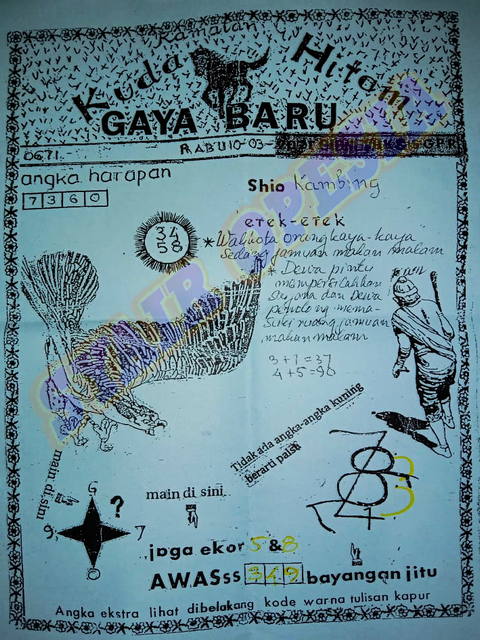 Ramalan
Kuda Hitam
GAYA BARU
0671
RABU 10-03-
angka harapan
7 3 6 0
Shio Kambing
34
58
etek-etek
* Walikota orang kaya-kaya
Sedang jamuan makan malam
* Dewa pintu
mempersilahkan
dan Dewa
penolong mema-
suki ruang jamuan
makan malam
3+1=37
4+5=90
Tidak ada angka-angka kuning
berarti palsu
main di sini
main di sini
G
?
9
7
0
jaga ekor 5 & 8
AWASss 3 4 9 bayangan jitu
Angka ekstra lihat dibelakang kode warna tulisan kapur